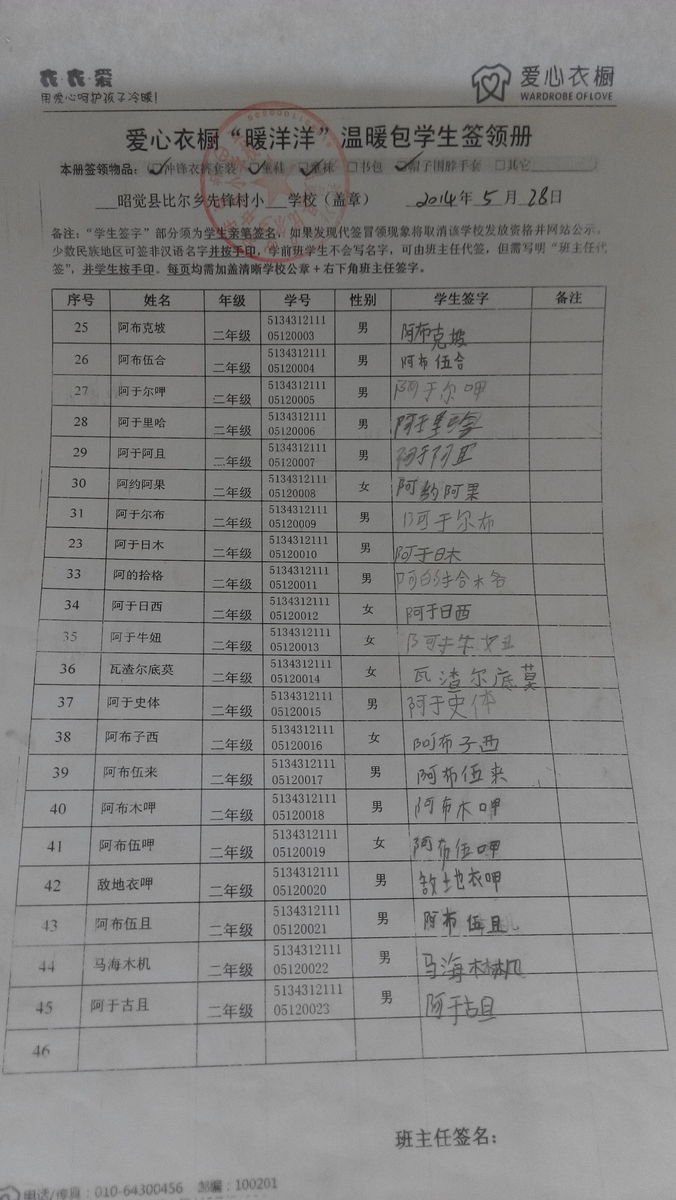 衣·衣·爱
用爱心呵护孩子冷暖!
爱心衣橱
WARDROBE OF LOVE
爱心衣橱“暖洋洋”温暖包学生签领册
本册签领物品: 冲锋衣裤套装 童鞋 童袜 书包 帽子围脖手套 其它
昭觉县比尔乡先锋村小 学校(盖章) 2014年 5 月 28日
备注:“学生签字”部分须为学生亲笔签名,如果发现代签冒领现象将取消该学校发放资格并网站公示,
少数民族地区可签非汉语名字并按手印,学前班学生不会写名字,可由班主任代签,但需写明“班主任代
签”,并学生按手印。每页均需加盖清晰学校公章+右下角班主任签字。
序号 姓名 年级 学号 性别 学生签字 备注
25 阿布克坡 二年级 5134312111 05120003 男 阿布克坡
26 阿布伍合 二年级 5134312111 05120004 男 阿布伍合
27 阿于尔呷 二年级 5134312111 05120005 男 阿于尔呷
28 阿于里哈 二年级 5134312111 05120006 男 阿于
29 阿于阿且 二年级 5134312111 05120007 男 阿于阿且
30 阿约阿果 二年级 5134312111 05120008 女 阿约阿果
31 阿于尔布 二年级 5134312111 05120009 男 阿于尔布
23 阿于日木 二年级 5134312111 05120010 男 阿于日木
33 阿的拾格 二年级 5134312111 05120011 男 阿的拾格
34 阿于日西 二年级 5134312111 05120012 女 阿于日西
35 阿于牛妞 二年级 5134312111 05120013 女 阿于牛妞
36 瓦渣尔底莫 二年级 5134312111 05120014 女 瓦渣尔底莫
37 阿于史体 二年级 5134312111 05120015 男 阿于史体
38 阿布子西 二年级 5134312111 05120016 女 阿布子西
39 阿布伍来 二年级 5134312111 05120017 男 阿布伍来
40 阿布木呷 二年级 5134312111 05120018 男 阿布木呷
41 阿布伍呷 二年级 5134312111 05120019 女 阿布伍呷
42 敌地衣呷 二年级 5134312111 05120020 男 敌地衣呷
43 阿布伍且 二年级 5134312111 05120021 男 阿布伍且
44 马海木机 二年级 5134312111 05120022 男 马海木机
45 阿于古且 二年级 5134312111 05120023 男 阿于古且
46
班主任签名:
电话/传真:010-64300456 邮编:100201